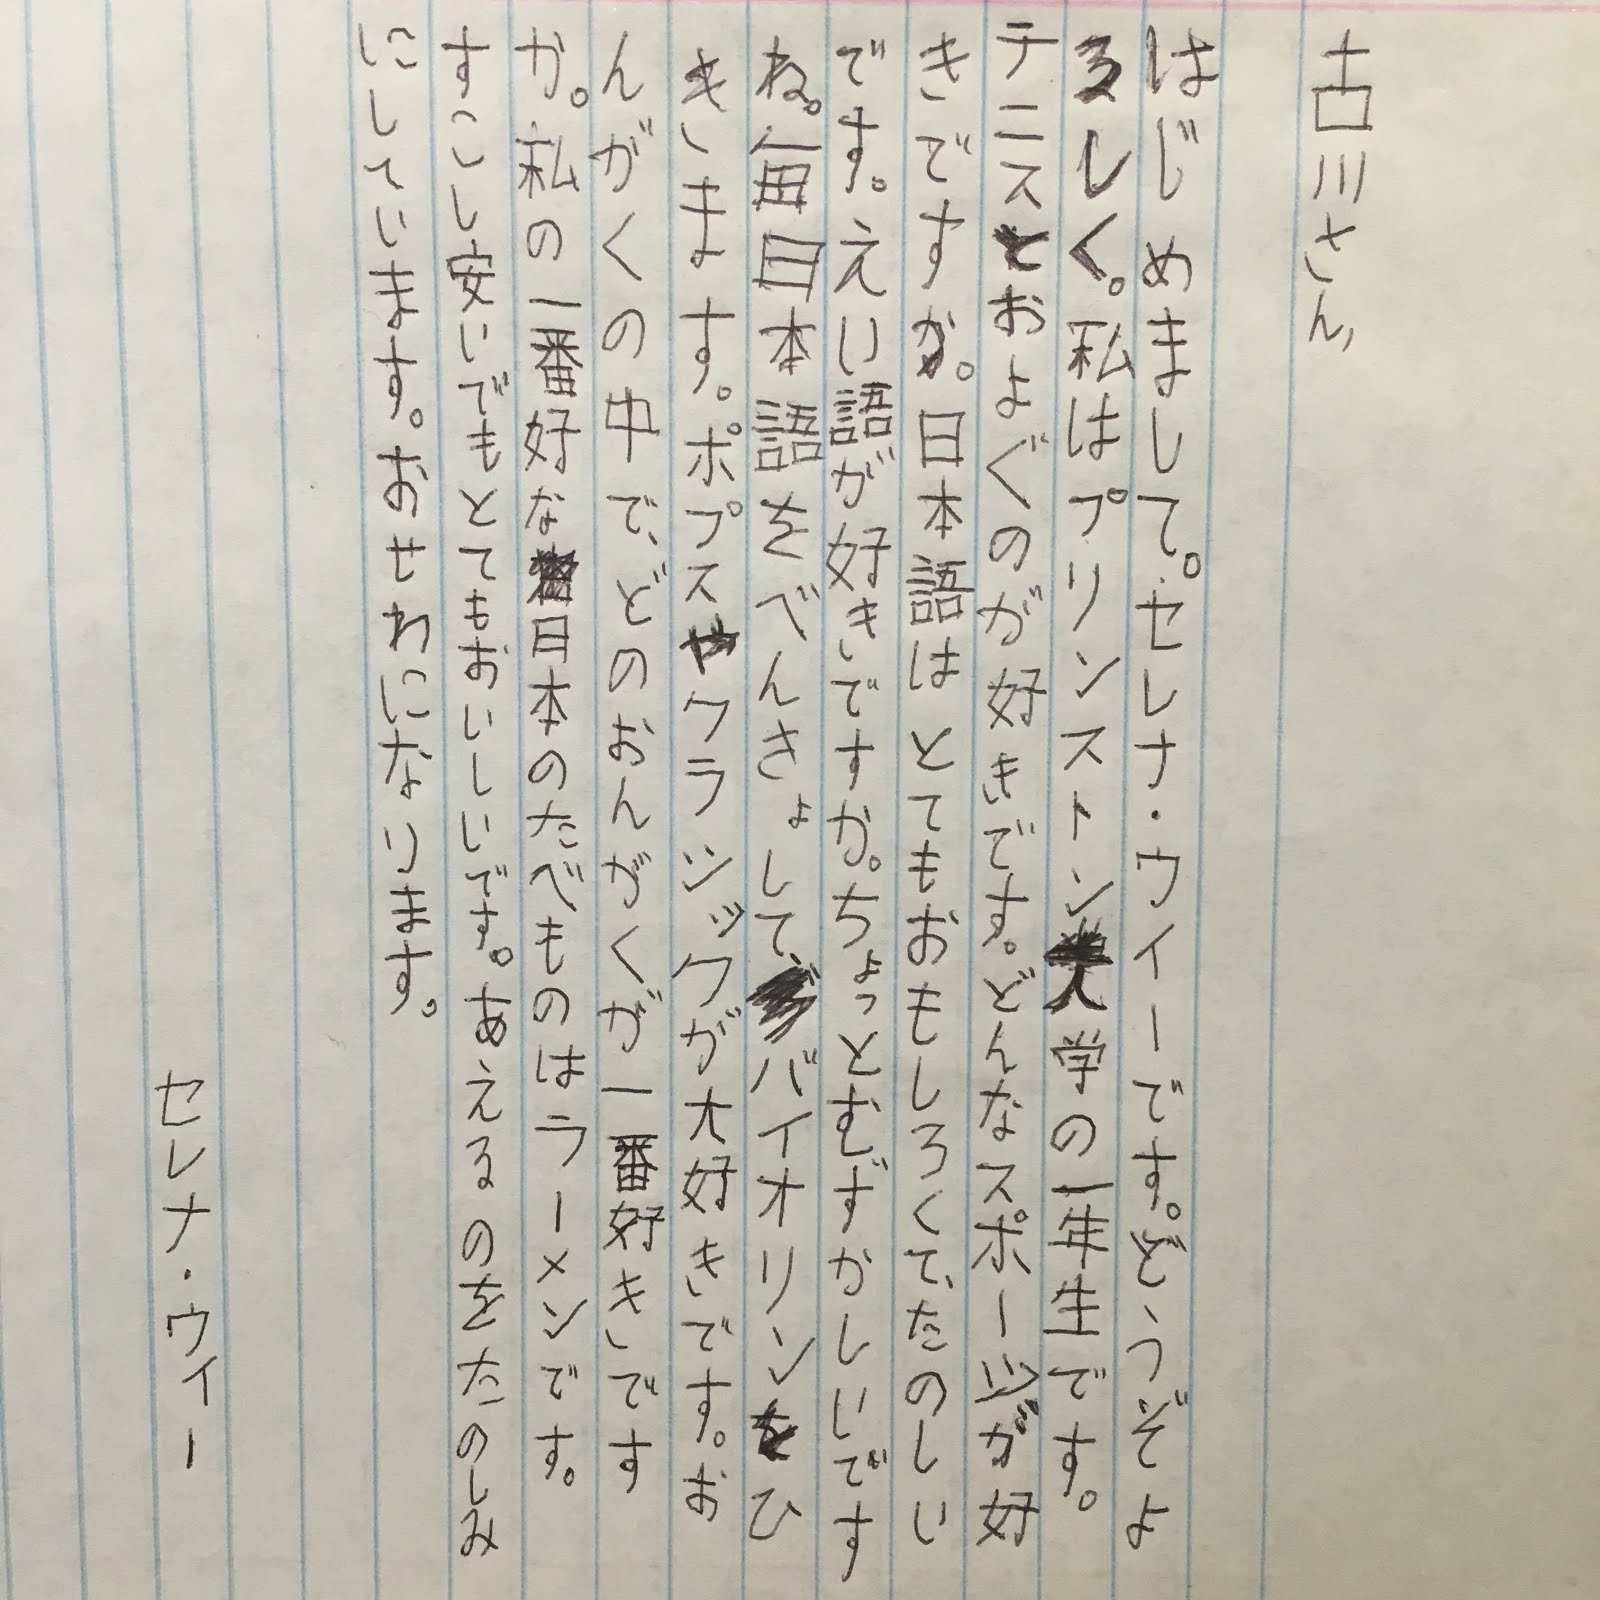 古川さん、
はじめまして。セレナ・ウィーです。どうぞよ
ろしく。私はプリンストン大学の一年生です。
テニスとおよぐのが好きです。どんなスポーツが好
きですか。日本語はとてもおもしろくて、たのしい
です。えい語が好きですか。ちょっとむずかしいです
ね。毎日本語をべんきょして、バイオリンをひ
きます。ポプスやクラシックが大好きです。お
んがくの中で、どのおんがくが一番好きです
か。私の一番好きな日本のたべものはラーメンです。
すこし安いでもとてもおいしいです。あえるのをたのしみ
にしています。おせわになります。
セレナ・ウィー